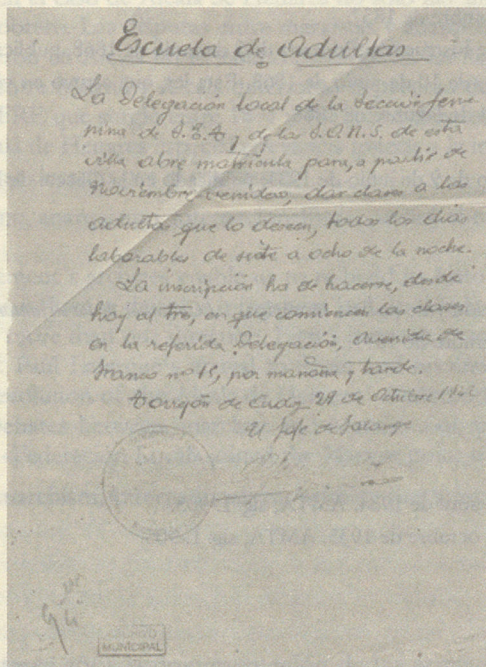 Escuela de Adultas
La Delegación local de la Sección feme
nina de F.E.T. y de las J.O.N.S. de esta
villa abre matrícula para, a partir de
Noviembre venidero, dar clases a las
adultas que lo deseen, todos los dias
laborables de siete a ocho de la noche.
La inscripción ha de hacerse, desde
hoy al tres, en que comienzan las clases
en la referida Delegación, avenida de
Franco nº 15, por mañana y tarde.
Torrejón de Ardoz 29 de Octubre 194
El Jefe de Falange
ARCHIVO
MUNICIPAL